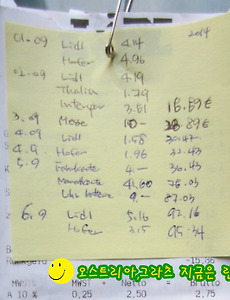 01.09 Lidl 4.14 2014
Hofer 4.96
02.09 Lidl 4.19
Thalia 1.79
Interspar 3.51 18.59€
3.09 Messe 10.- 28.89€
4.09 Lidl 1.58 30.47
4.9 Hofer 1.96 32.43
5.9 4.- 36.43
41,60 78.03
Uhr 9.- 87.03
6.9 Lidl 5.16 92.16
Hofer 3.5 95.34
Rückgeld -15.86
MWST% MWST + Netto = Brutto
A 10 % 0,25 2,50 2,75
오스트리아그라츠 지금은 린